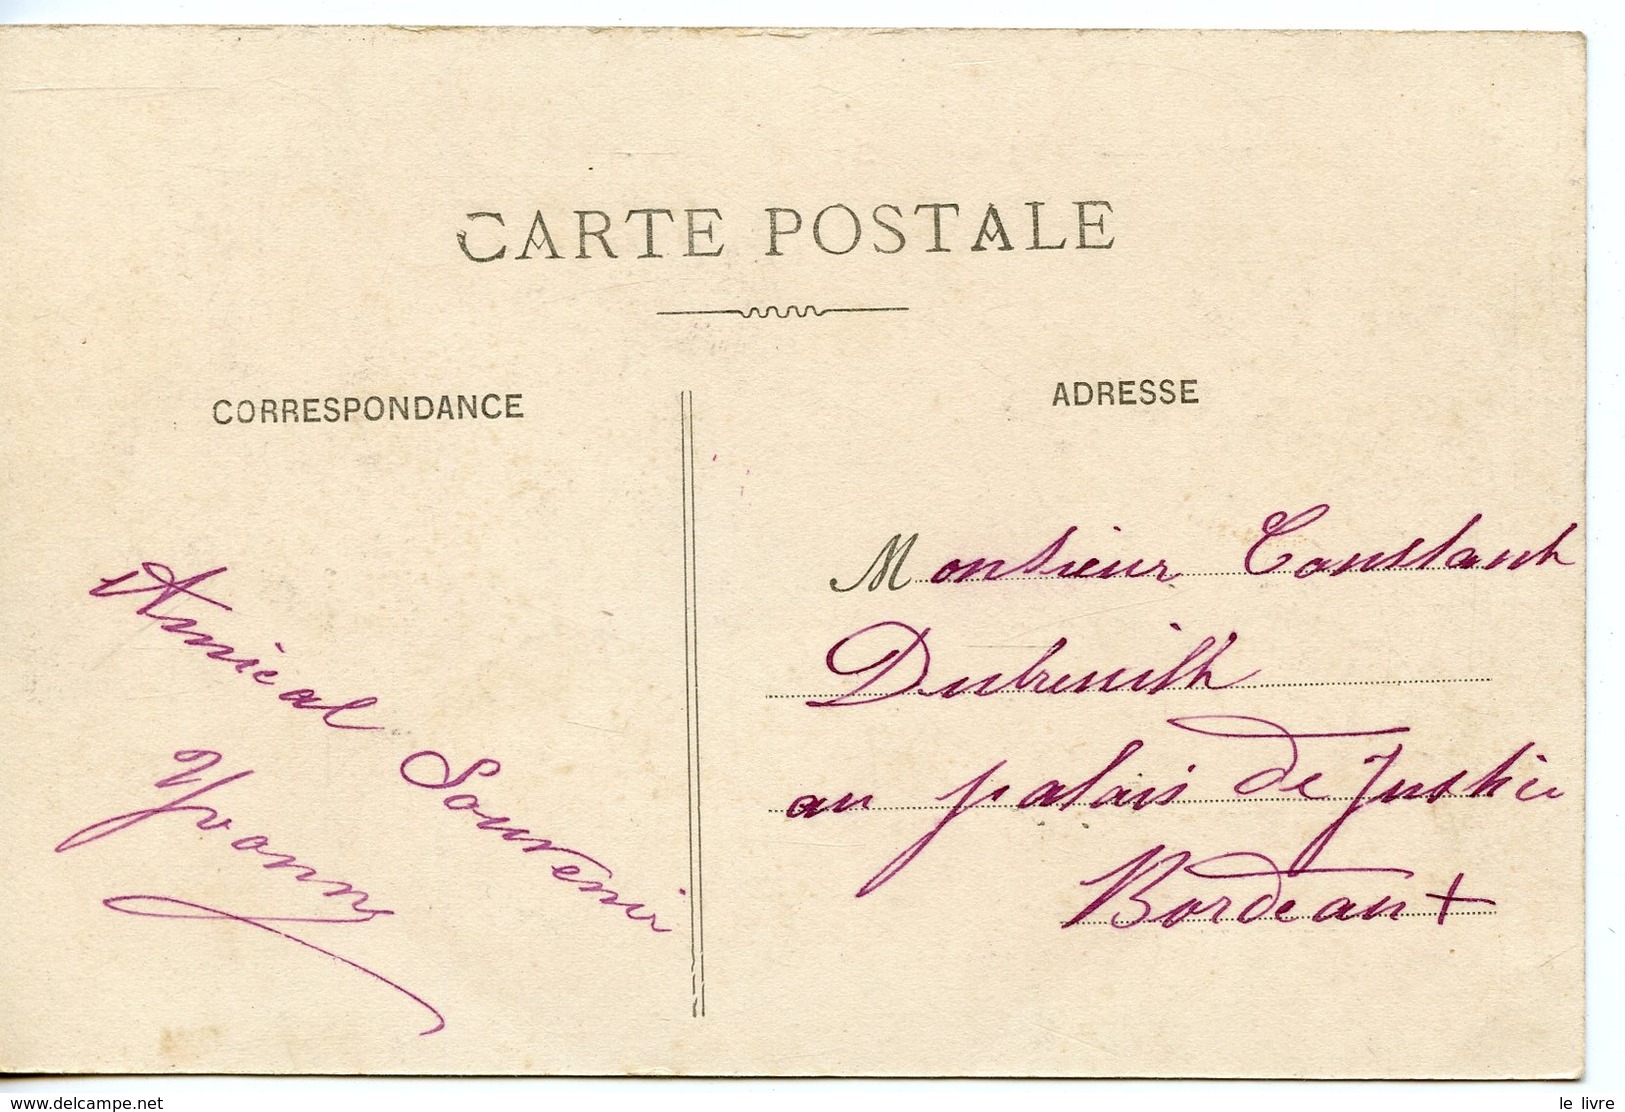 CARTE POSTALE
CORRESPONDANCE
ADRESSE
Amical Souvenir
Yvonne
Monsieur Constant
Dubreuilh
au palais de Justice
Bordeaux
delcampe.net
le livre